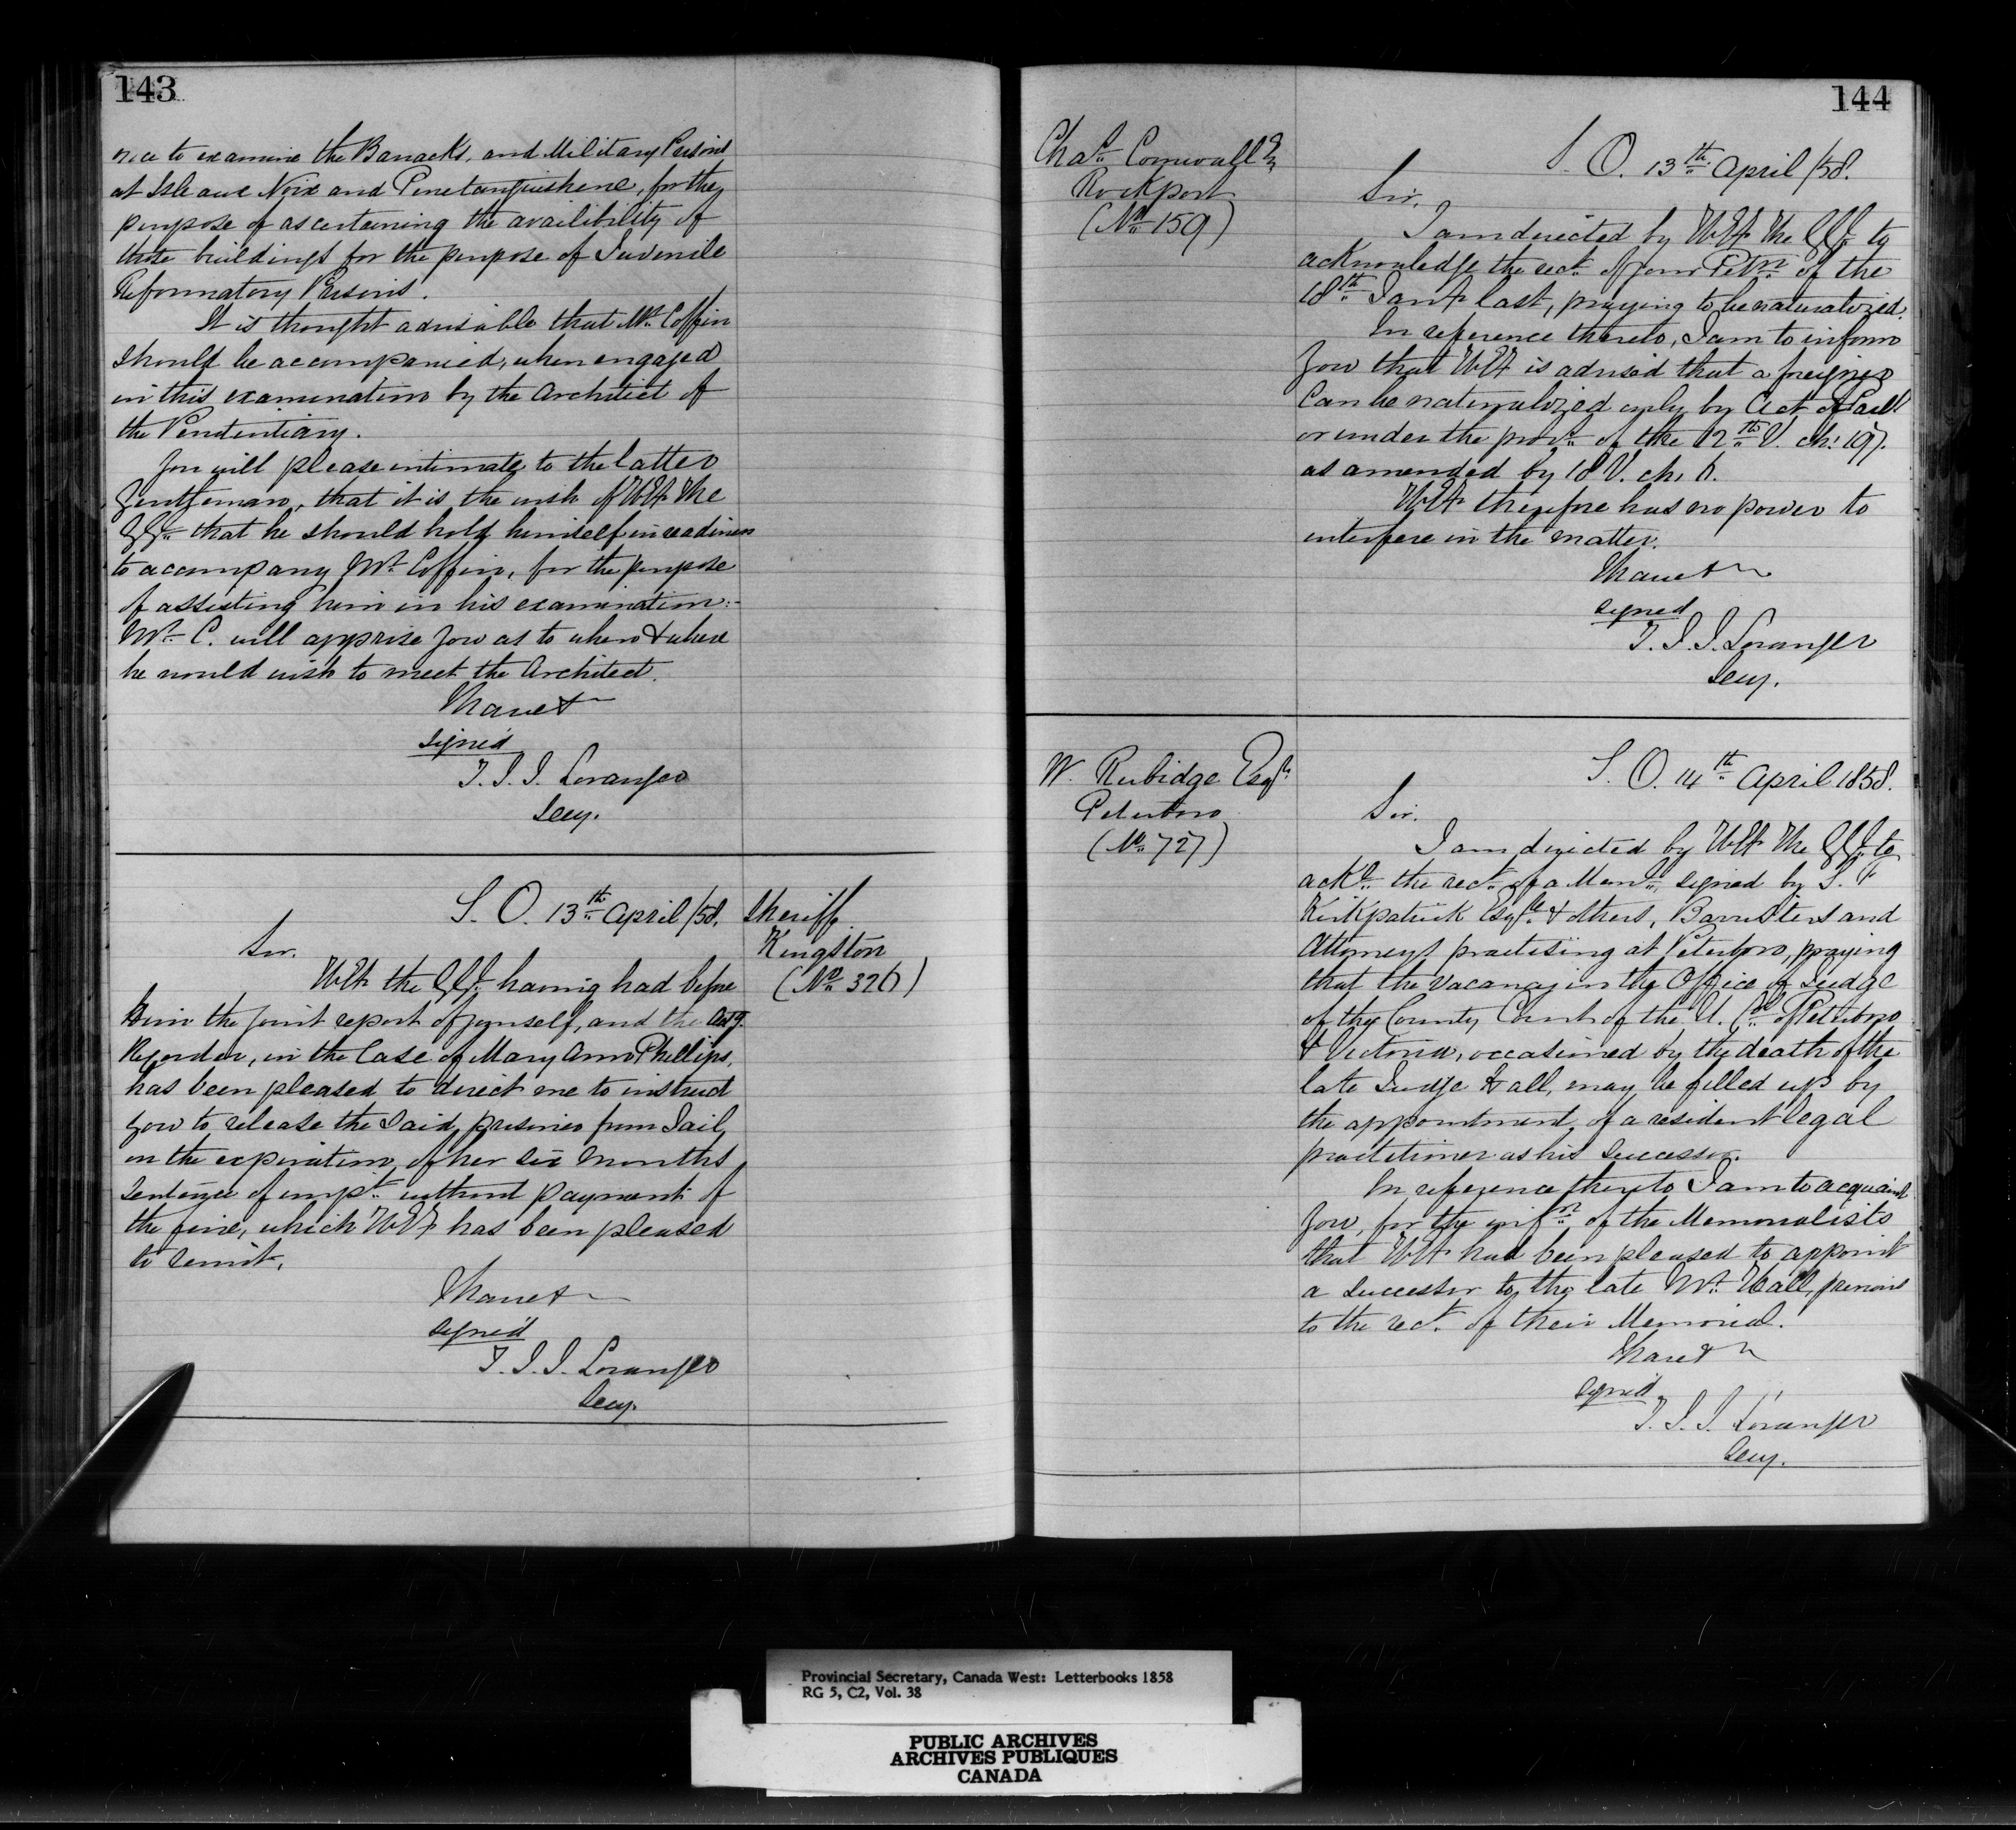 143
once to examine the Barracks, and Military Prisons
at Isle aux Noix and Penetanguishene, for the
purpose of ascertaining the availibility of
those buildings for the purpose of Juvenile
Reformatory Prisons.
It is thought advisable that Mr. Coffin
should be accompanied, when engaged
in this examination by the Architect of
the Penitentiary.
You will please intimate to the latter
Gentleman, that it is the wish of HE The
GG. that he should hold himself in readiness
to accompany Mr. Coffin, for the purpose
of assisting him in his examination:-
Mr. C. will apprise you as to when & where
he would wish to meet the Architect.
I have &
signed
T. J. J. Loranger
Secy.
S. O. 13th April /58.
Sheriff
Kingston
(No. 326)
Sir.
HE the GG. having had before
him the joint report of yourself, and the Actg.
Recorder, in the Case of Mary Ann Phillips,
has been pleased to direct me to instruct
you to release the said prisoner from Jail,
on the expiration of her six months
sentence of impt. without payment of
the fine, which HE has been pleased
to remit.
I have &
signed
T. J. J. Loranger
Secy.
144
Chas. Cornwall Eq
Rockport
(No. 159)
S. O. 13th April /58.
Sir.
I am directed by HE The GG. to
acknowledge the rect. of your Petn. of the
18th Jany last, praying to be naturalized.
In reference thereto, I am to inform
you that HE is advised that a foreigner
can be naturalized only by Act of Parlt
or under the provs. of the 12th V. ch: 197.
as amended by 18 V. ch. 6.
HE therefore has no power to
interfere in the matter.
I have &
signed
T. J. J. Loranger
Secy.
W. Rubidge Esqr.
Peterboro
(No. 727)
S. O. 14th April 1858.
Sir.
I am directed by HE The GG. to
acke. the rect. of a Meml. signed by S. F
Kirkpatrick Esqre. & others, Barristers and
Attorneys practising at Peterboro, praying
that the vacancy in the Office of Judge
of the County Court of the U. Cos. of Peterboro
& Victoria, occasioned by the death of the
late Judge Hall, may be filled up by
the appointment of a resident legal
practitioner as his Successor.
In reference thereto I am to acquaint
you, for the infn. of the Memorialists
that HE had been pleased to appoint
a successor to the late Mr. Hall, previous
to the rect. of their Memorial.
I have &
signed
T. J. J. Loranger
Secy.
Provincial Secretary, Canada West: Letterbooks 1858
RG 5, C2, Vol. 38
PUBLIC ARCHIVES
ARCHIVES PUBLIQUES
CANADA